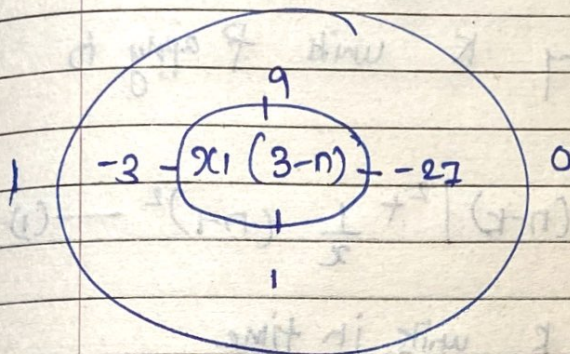 9
1 -3 x1 (3-n) -27 0
1